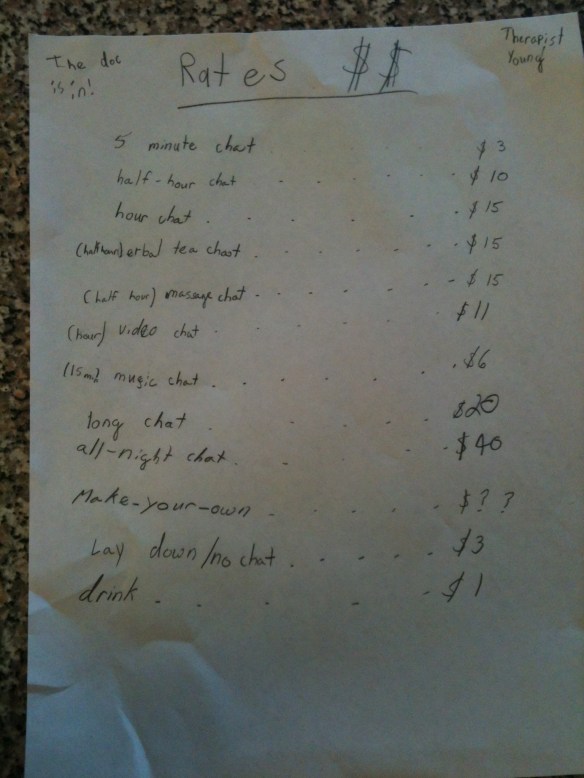 The doc
is in!
Rates $$
Therapist
Young
5 minute chat . . . $3
half-hour chat - - - - - $10
hour chat . - . - - - $15
(half hour) erbal tea chat . . - - - - $15
(half hour) massage chat - - - - - - $15
(hour) video chat - - - - $11
(15 min) music chat . . - . . . $6
long chat . - $20
all-night chat . - - - $40
Make-your-own - - - - - $??
Lay down/no chat . - - - - $3
drink - . - - - $1